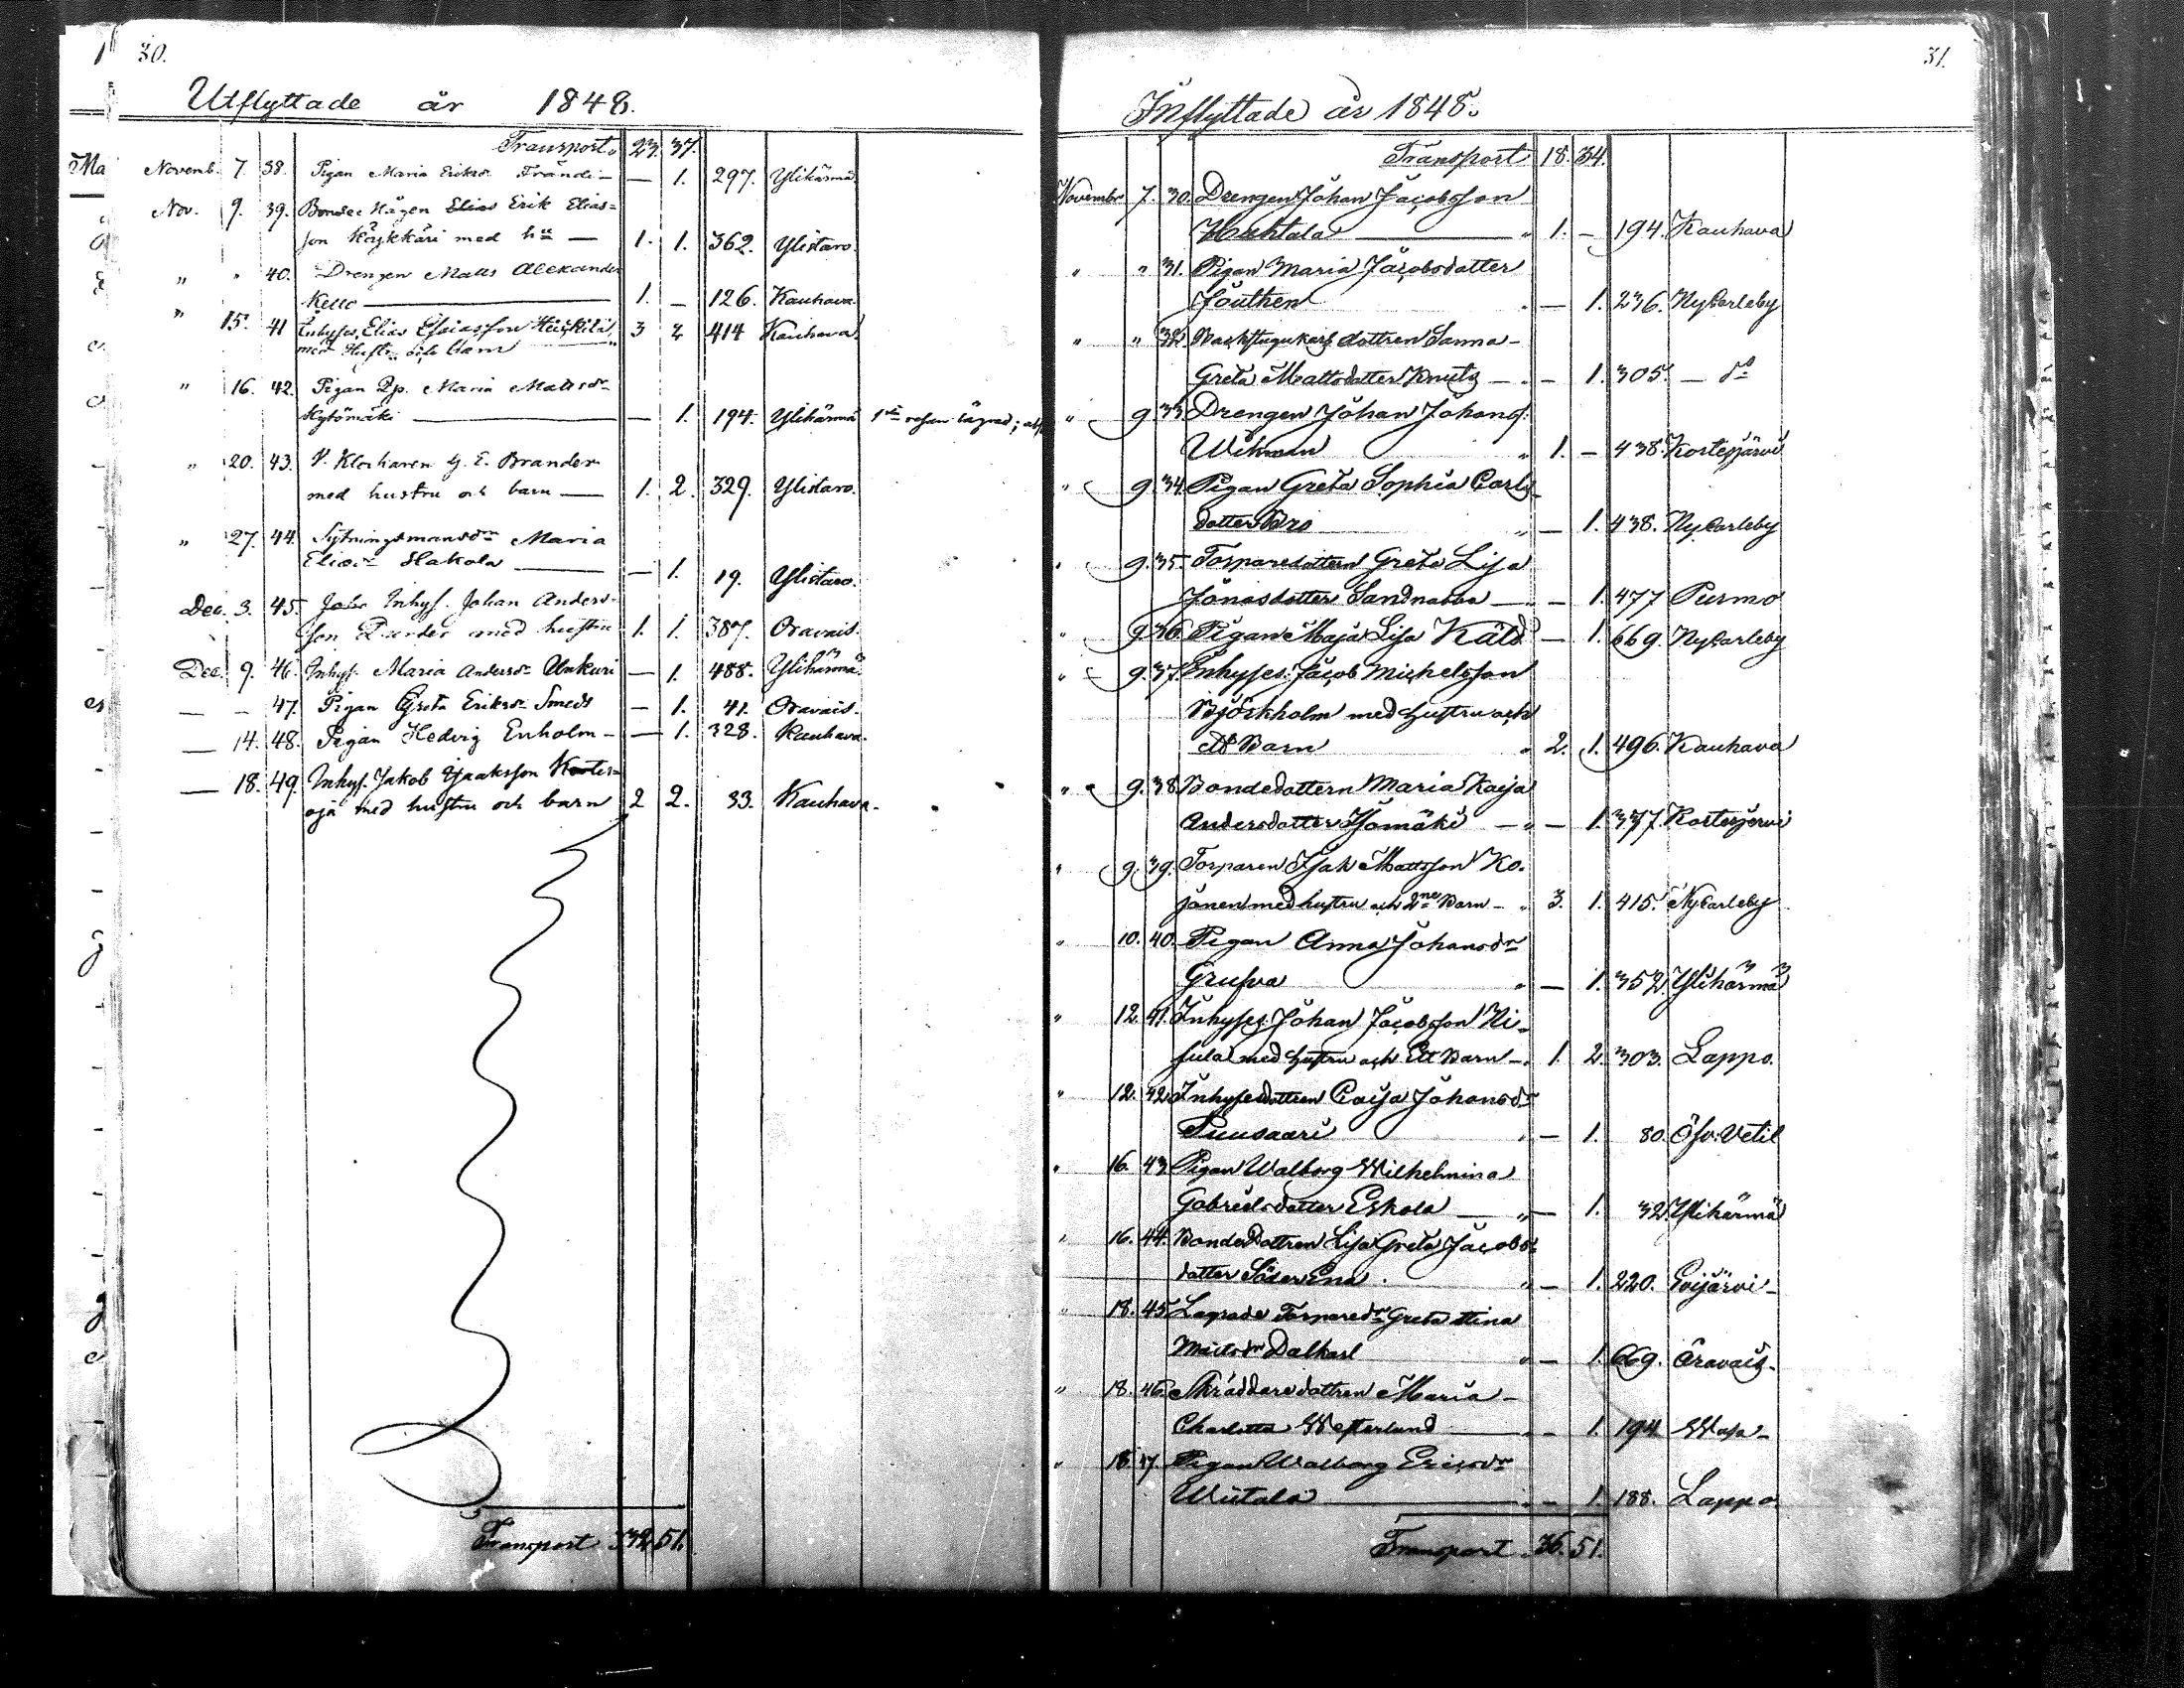 30.
Utflyttade år 1848.
Transport. 23. 37.
Novemb. 7. 38. Pigan Maria Eriksdr Frändi — — 1. 297. Ylihärmä
Nov. 9. 39. Bonde Hägen Elias Erik Elias-
sonKöykkäri med hu — 1. 1. 362. Ylistaro.
" " 40. Drengen Matts Alexander
Kello — 1. — 126. Kauhava.
" 15. 41 Inhyses Elias Esiasson
med Hustr. och barn 3 2 414 Kauhava.
" 16. 42. Pigan Maria Mattsdr
Kytömäki — — 1. 194. Ylihärmä
" 20. 43. V. Klockaren G. E. Brander
med hustru och barn — 1. 2. 329. Ylistaro.
" 27. 44. Sytningsmansdr Maria
Eliasdr Hakola — — 1. 19. Ylistaro.
Dec. 3. 45. Inhys. Johan Anders-
son med hustru 1. 1. 387. Oravais.
Dec. 9. 46. Inhys. Maria Andersdr — 1. 488. Ylihärmä.
— — 47. Pigan Greta Eriksdr Smeds — 1. 41. Oravais.
— 14. 48. Pigan Hedvig Enholm — — 1. 328. Kauhava.
— 18. 49. Inhys. Jakob Isaaksson Kortes-
oja med hustru och barn 2 2. 33. Kauhava.
Transport 32. 51.
31.
Inflyttade år 1848.
Transport 18. 34.
Novembr 7. 30. Drengen Johan Jacobsson
Huhtala — " 1. — 194. Kauhava
" " 31. Pigan Maria Jacobsdatter
Jouthen " — 1. 236. NyCarleby
" " 32. Backstugukarls dottren Sanna
Greta Mattsdatter Knuts — " — 1. 305. — do
" 9. 33. Drengen Johan Johans.
Wikman " 1. — 438. Kortesjärvi
" 9. 34. Pigan Greta Sophia Carls-
datter Bro " — 1. 438. NyCarleby
" 9. 35. Torparedattern Greta Lisa
Jonasdatter Sandnabba — " — 1. 477 Purmo
" 9. 36. Pigan Maja Lisa Käld — 1. 669. NyCarleby
" 9. 37. Inhyses Jacob Michelsson
Björkholm med hustru och
ett Barn " 2. 1. 496. Kauhava
" 9. 38. Bondedattern Maria Kaisa
Andersdatter — " — 1. 377. Kortesjervi
" 9. 39. Torparen Isak Mattsson Ko-
jonen med hustru och 2ne Barn — " 3. 1. 415. NyCarleby
" 10. 40. Pigan Anna Johansdr
Grufva " — 1. 352. Ylihärmä
" 12. 41. Inhyses Johan Jacobsson Ni-
sula med hustru och Ett Barn — " 1. 2. 303. Lappo.
" 12. 42. Inhysesdattren Caisa Johansdr
Puusaari " — 1. 80. Öfv. Vetil
" 16. 43. Pigan Walborg Wilhelmina
Gabrielsdatter Eskola — " — 1. 32. Ylihärmä
" 16. 44. Bondedottren Lisa Greta Jacobs-
datter " — 1. 220. Evijärvi
" 18. 45. Torparedr Greta Stina
Mattsdr Dalkarl " — 1. 669. Oravais.
" 18. 46. Skräddaredottren Maria
Charlotta Westerlund — " — 1. 194 Wasa
" 18. 47. Pigan Walborg Ericsdr
Wiitala — " — 1. 188. Lappo
Transport. 36. 51.